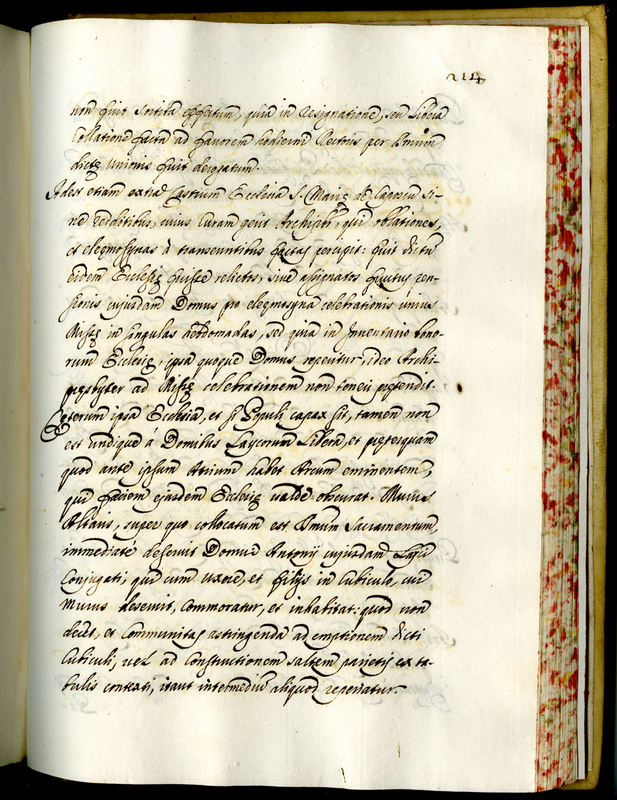 214
non fuit sortita effectum, quia in resignatione, seu libera
Collatione facta ad favorem hodierni Rectoris per Bullam
dictæ unionis fuit derogatum.
Adest etiam extra Castrum Ecclesia S. Mariæ de
ne redditibus, cuius Curam gerit Archipbr, qui oblationes,
et elęmosynas à transeuntibus factas percipit: fuit dictu
eidem Ecclesiæ fuisse relictos, sive assignatos fructus pen-
sionis cujusdam Domus pro elęmosyna celebrationis unius
Missæ in singulas hebdomadas, sed quia in Inventario bono-
rum Ecclesiæ, ipsa quoque Domus reperitur, ideo Archi-
presbyter ad Missæ celebrationem non teneri prętendit.
Cęterum ipsa Ecclesia, et si Populi capax sit, tamen non
est undique a Domibus Laycorum libera, et pręterquam
quod ante ipsum Atrium habet Arcum eminentem,
qui faciem ejusdem Ecclesiæ valdè obscurat. Murus
Altaris, super quo collocatum est Smum Sacramentum,
immediatè deservit Domui Antonij cujusdam Laici
Conjugati, qui cum uxore, et filijs in Cubiculo, cui
Murus deservit, commoratur, et inhabitat: quod non
decet, et Communitas astringenda ad emptionem dicti
Cubiculi, vel ad constructionem saltem parietis ex ta-
bulis contexti, itaut intermedium aliquod reperiatur.